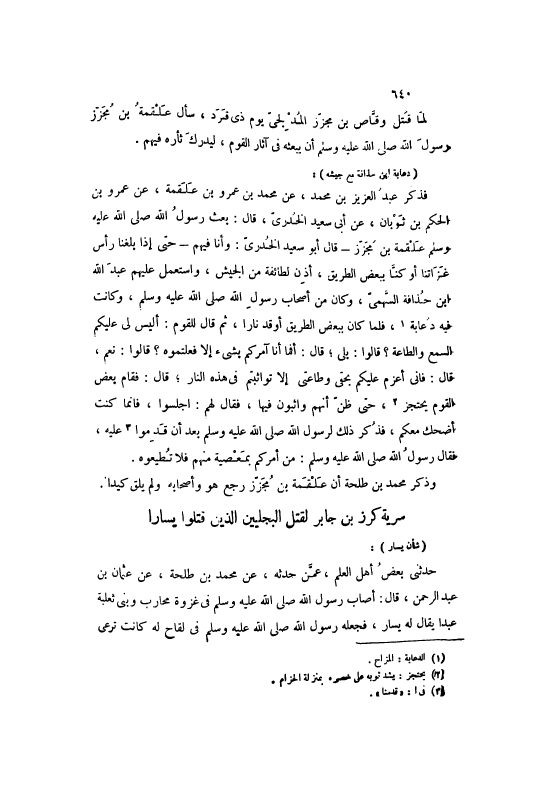 ٦٤٠
لمّا قُتل وقَّاص بن مجزّز المُدْلجىّ يوم ذى قَرَد ، سأل عَلْقمةُ بن مُجَزّز
رسولَ الله صلى الله عليه وسلم أن يبعثه فى آثار القوم ، ليدركَ ثأره فيهم .
( دعابة ابن حذافة مع جيشه ) :
فذكر عبدُ العزيز بن محمد ، عن محمد بن عمرو بن عَلْقمة ، عن عمرو بن
الحكم بن ثَوْبان ، عن أبى سعيد الخُدرىّ ، قال : بعث رسولُ الله صلى الله عليه
وسلم عَلْقمة بن مُجَزّز – قال أبو سعيد الخُدرىّ : وأنا فيهم – حتَّى إذا بلغنا رأس
غَزَاتنا أو كنَّا ببعض الطريق ، أذِن لطائفة من الجيش ، واستعمل عليهم عبدَ الله
ابن حُذافة السَّهمىّ ، وكان من أصحاب رسولِ الله صلى الله عليه وسلم ، وكانت
فيه دُعابة ١ ، فلما كان ببعض الطريق أوقد نارا ، ثم قال للقوم : أليس لى عليكم
السمع والطاعة ؟ قالوا : بلى ؛ قال : أفما أنا آمركم بشىء إلا فعلتموه ؟ قالوا : نعم ،
قال : فانى أعزم عليكم بحقى وطاعتى إلا تواثبتم فى هذه النار ؛ قال : فقام بعض
القوم يحتجز ٢ ، حتى ظنّ أنهم واثبون فيها ، فقال لهم : اجلسوا ، فانما كنت
أضحك معكم ، فذُكر ذلك لرسول الله صلى الله عليه وسلم بعد أن قَدِموا ٣ عليه ،
فقال رسولُ الله صلى الله عليه وسلم : من أمركم بمَعْصية منهم فلا تُطيعوه .
وذكر محمد بن طلحة أن عَلْقمة بن مُجَزّز رجع هو وأصحابه ولم يلق كيدا .
سرية كرز بن جابر لقتل البجليين الذين قتلوا يسارا
( شأن يسار ) :
حدثنى بعضُ أهل العلم ، عمَّن حدثه ، عن محمد بن طلحة ، عن عثمان بن
عبد الرحمن ، قال : أصاب رسول الله صلى الله عليه وسلم فى غزوة محارب وبنى ثعلبة
عبدا يقال له يسار ، فجعله رسول الله صلى الله عليه وسلم فى لقاح له كانت ترعى
(١) الدعابة : المزاح .
(٢) يحتجز : يشد ثوبه على خصره بمنزلة الحزام .
(٣) فى ا : « قدمنا » .